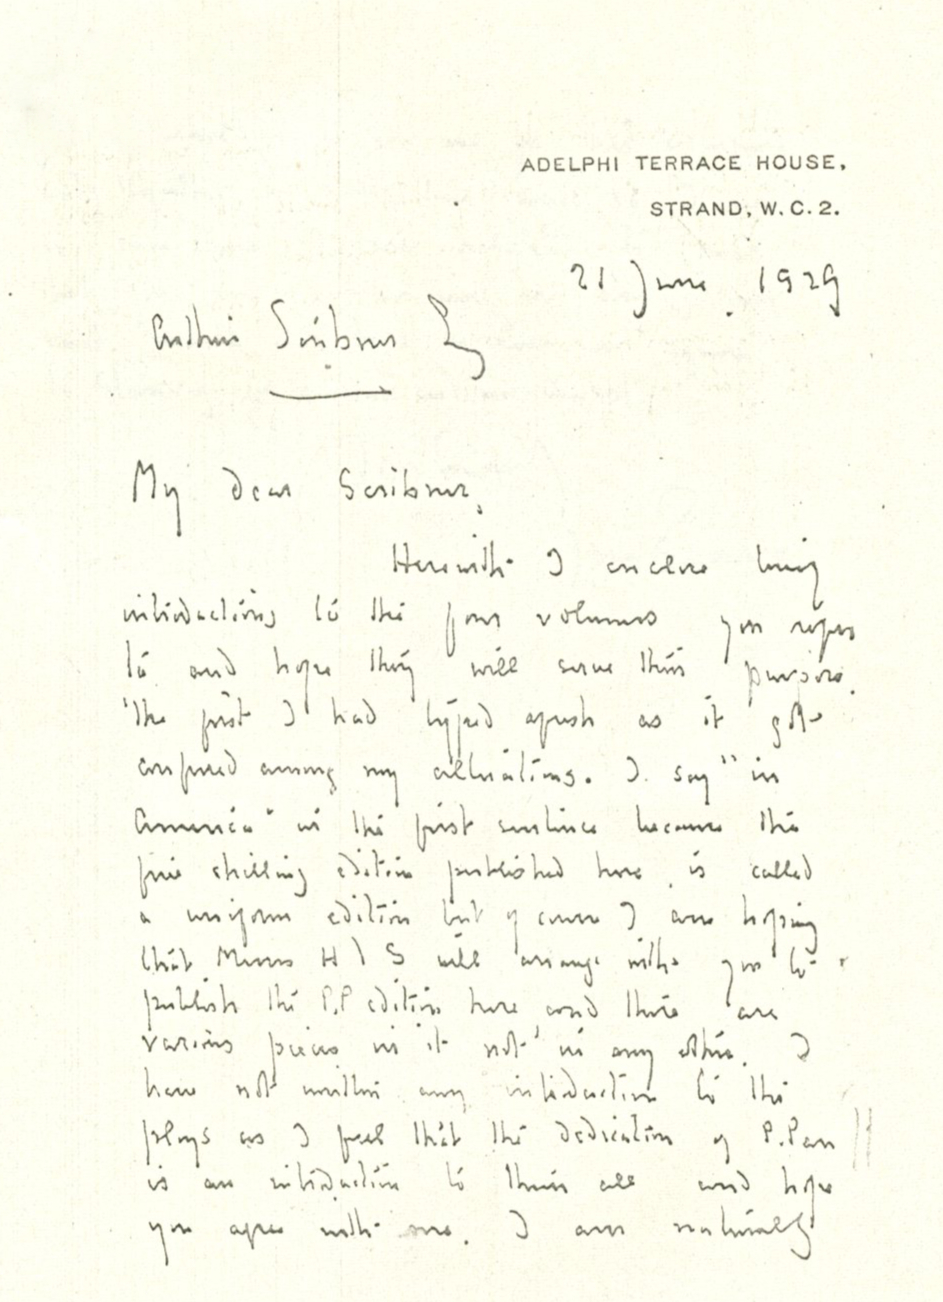 ADELPHI TERRACE HOUSE,
STRAND, W.C.2.
21 June 1929
Arthur Scribner Esq
My dear Scribner,
Herewith I enclose
introductions to the four volumes you refer
to and hope they will serve their purpose.
The first I had typed afresh as it got
confused among my alterations. I say "in
America" in the first sentence because the
five shilling edition published here is called
a uniform edition but of course I am hoping
that Messrs H \ S will arrange with you to
publish the P.P edition here and there are
various pieces in it not in any other. I
have not written any introduction to the
plays as I feel that the dedication of P.Pan
is an introduction to them all and hope
you agree with me. I am naturally